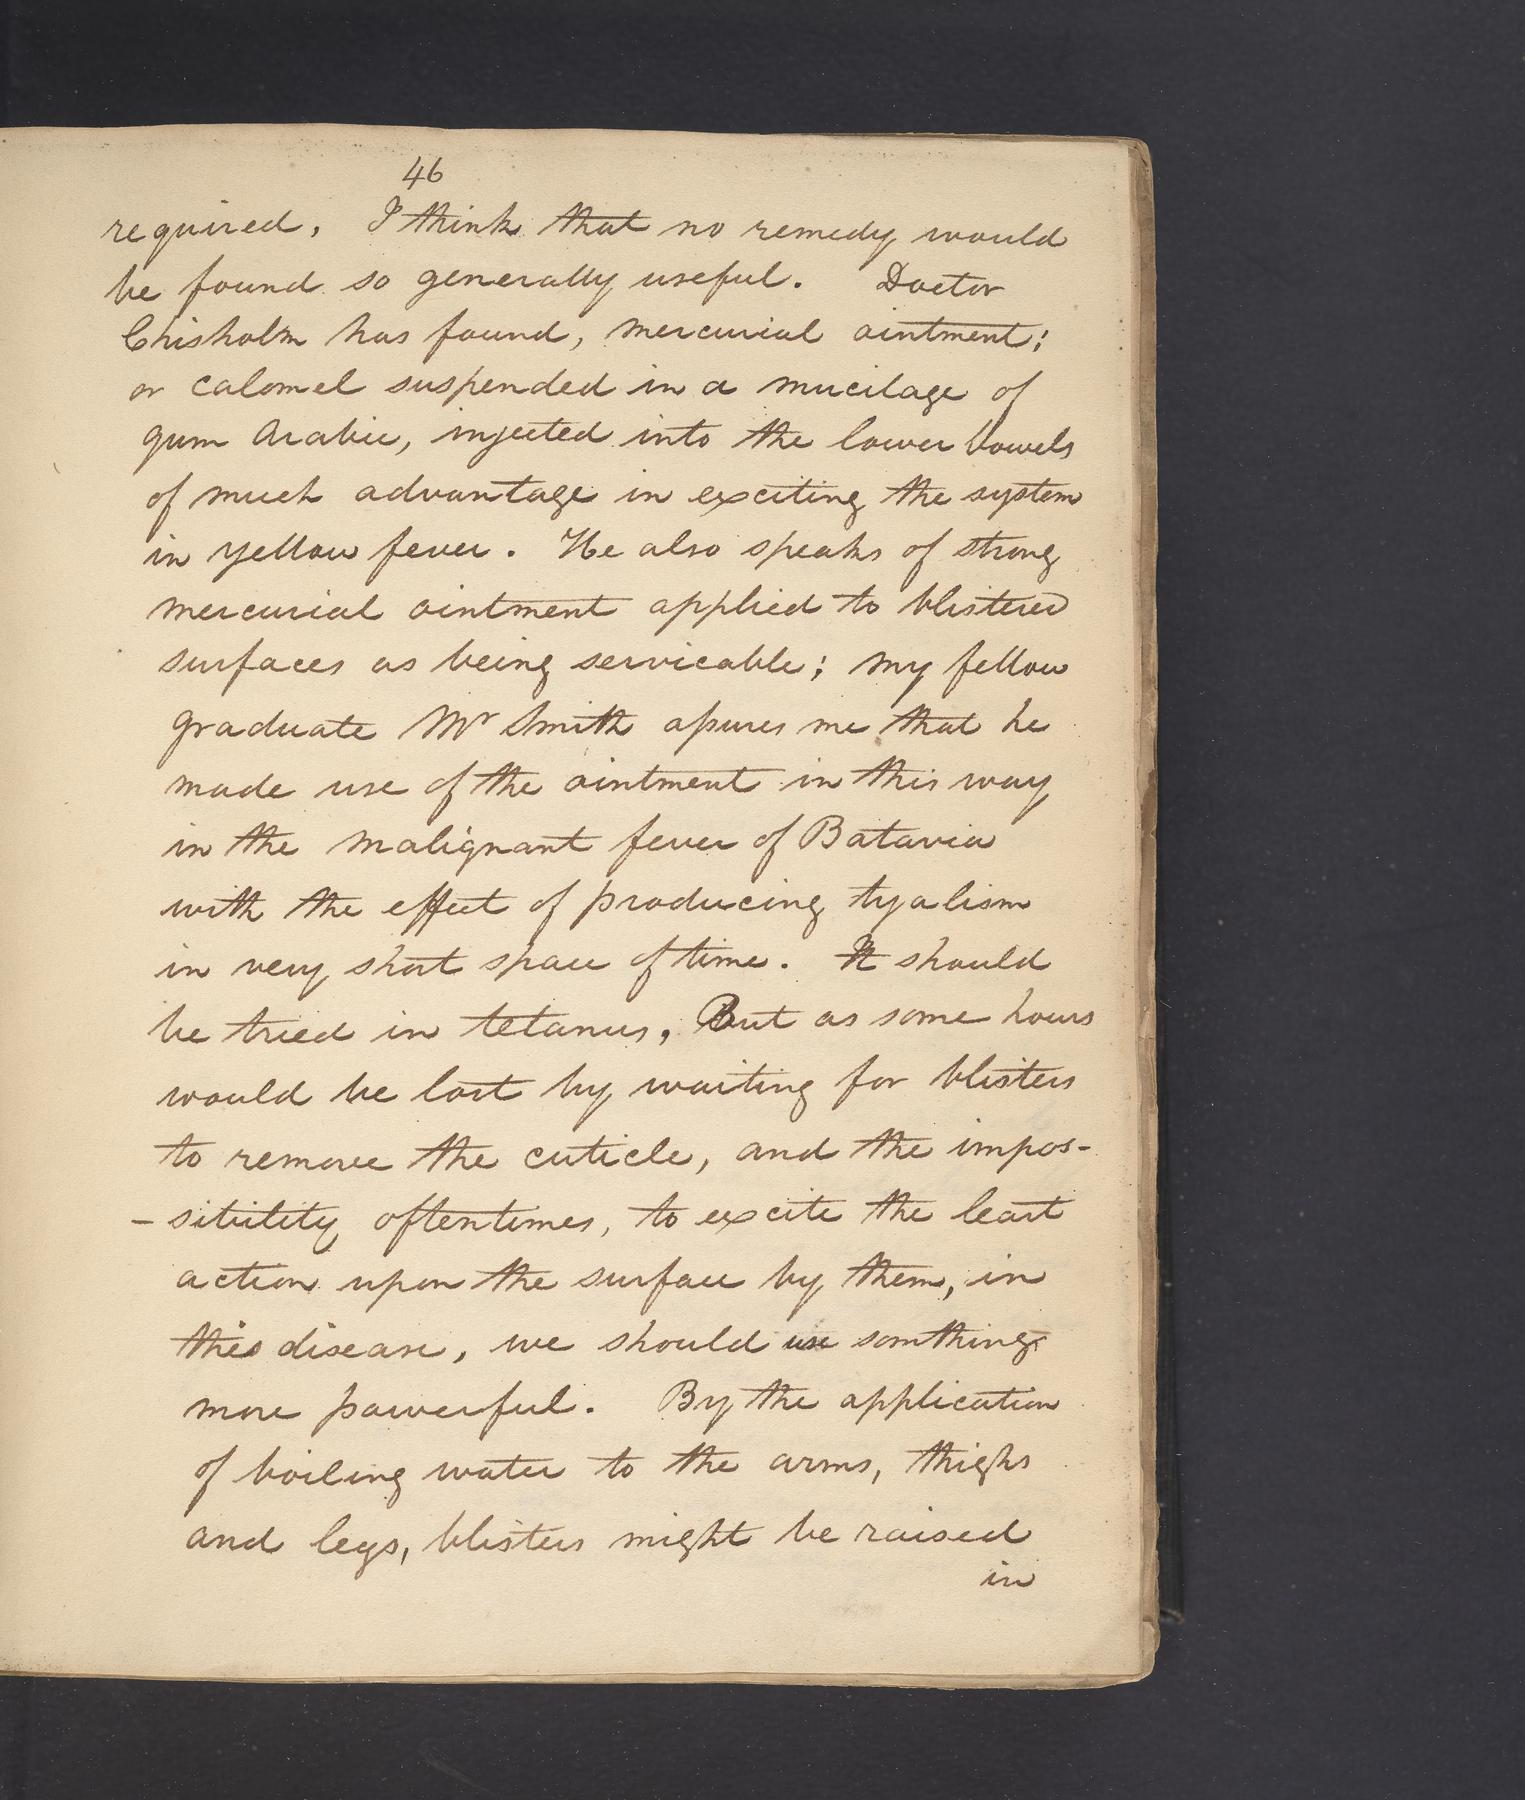 46
required. I think that no remedy would
be found so generally useful. Doctor
Chisholm has found, mercurial ointment;
or calomel suspended in a mucilage of
gum Arabic, injected into the lower bowels
of much advantage in exciting the system
in yellow fever. He also speaks of strong
mercurial ointment applied to blistered
surfaces as being servicable; my fellow
graduate Mr Smith assures me that he
made use of the ointment in this way
in the malignant fever of Batavia
with the effect of producing tyalism
in very short space of time. It should
be tried in tetanus, But as some hours
would be lost by waiting for blisters
to remove the cuticle, and the impos-
-sibility oftentimes, to excite the least
action upon the surface by them, in
this disease, we should use somthing
more powerful. By the application
of boiling water to the arms, thighs
and legs, blisters might be raised
in